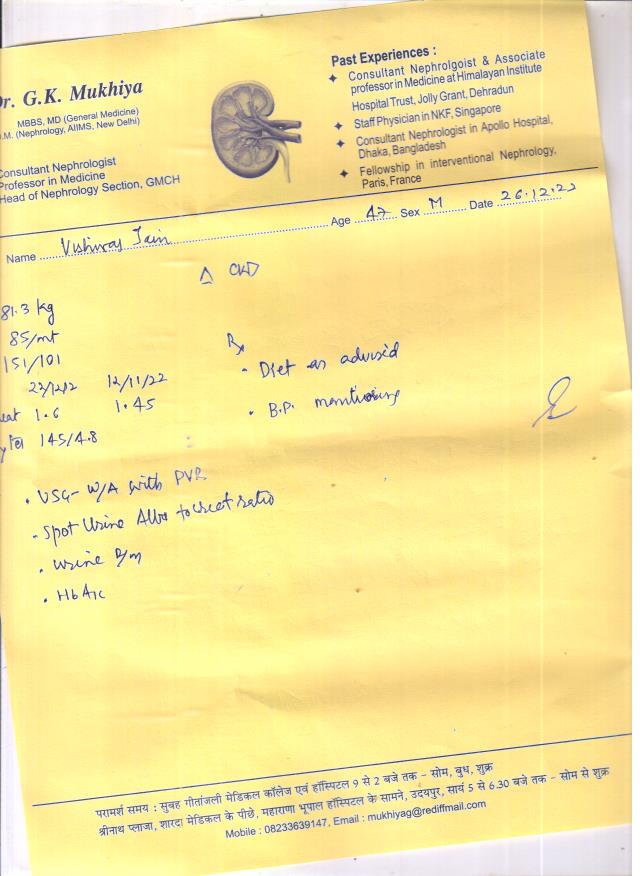 Dr. G.K. Mukhiya
MBBS, MD (General Medicine)
D.M. (Nephrology, AIIMS, New Delhi)
Consultant Nephrologist
Professor in Medicine
Head of Nephrology Section, GMCH
Past Experiences :
Consultant Nephrolgoist & Associate
professor in Medicine at Himalayan Institute
Hospital Trust, Jolly Grant, Dehradun
Staff Physician in NKF, Singapore
Consultant Nephrologist in Apollo Hospital,
Dhaka, Bangladesh
Fellowship in interventional Nephrology,
Paris, France
Name Vishwaj Jain Age 47 Sex M Date 26.12.22
Δ CKD
81.3 kg
85/mt
151/101
12/11/22
eat 1.6 1.45
145/4.8
Rx
• Diet as advised
• B.P. monitoring
• USG - W/A with PVR
• Spot Urine Alb to creat ratio
• Urine R/m
• HbA1c
परामर्श समय : सुबह गीतांजली मेडिकल कॉलेज एवं हॉस्पिटल 9 से 2 बजे तक – सोम, बुध, शुक्र
श्रीनाथ प्लाजा, शारदा मेडिकल के पीछे, महाराणा भूपाल हॉस्पिटल के सामने, उदयपुर, सायं 5 से 6.30 बजे तक – सोम से शुक्र
Mobile : 08233639147, Email : mukhiyag@rediffmail.com